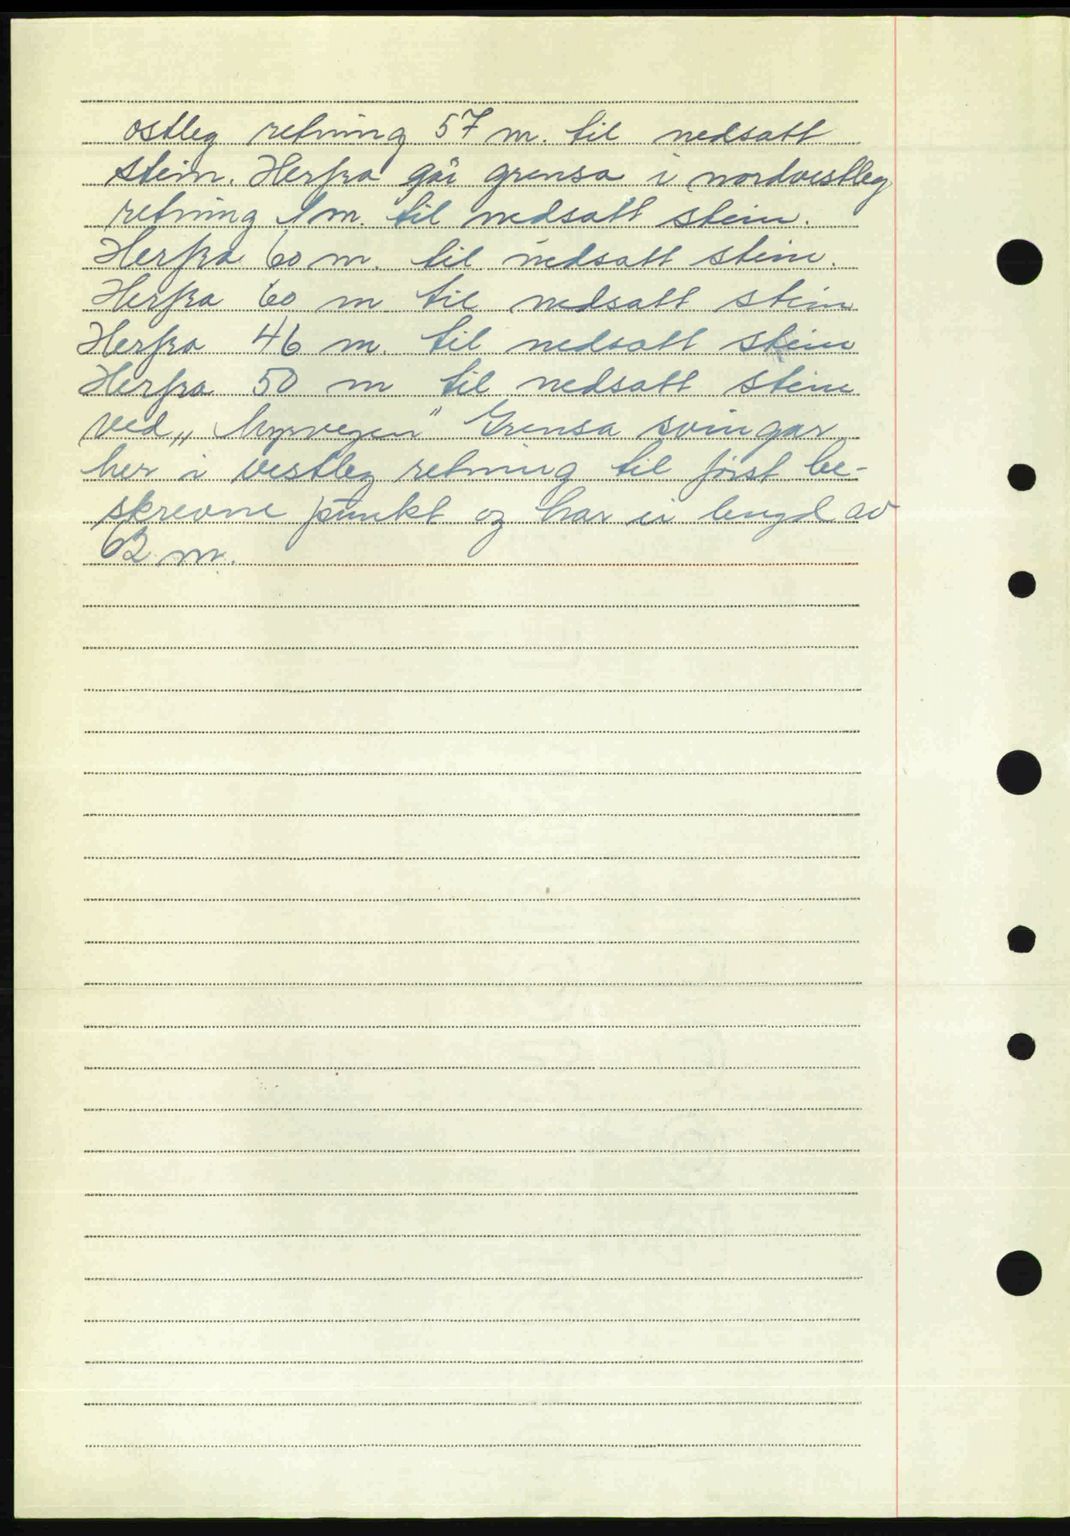 ostleg retning 57 m. til nedsatt
stein. Herfra går grensa i nordvestleg
retning 1 m. til nedsatt stein.
Herfra 60 m. til nedsatt stein.
Herfra 60 m til nedsatt stein
Herfra 46 m. til nedsatt stein
Herfra 50 m til nedsatt stein
ved „ Myrvegen" Grensa svingar
her i vestleg retning til først be-
skrevne punkt og har ei lengd av
62 m.